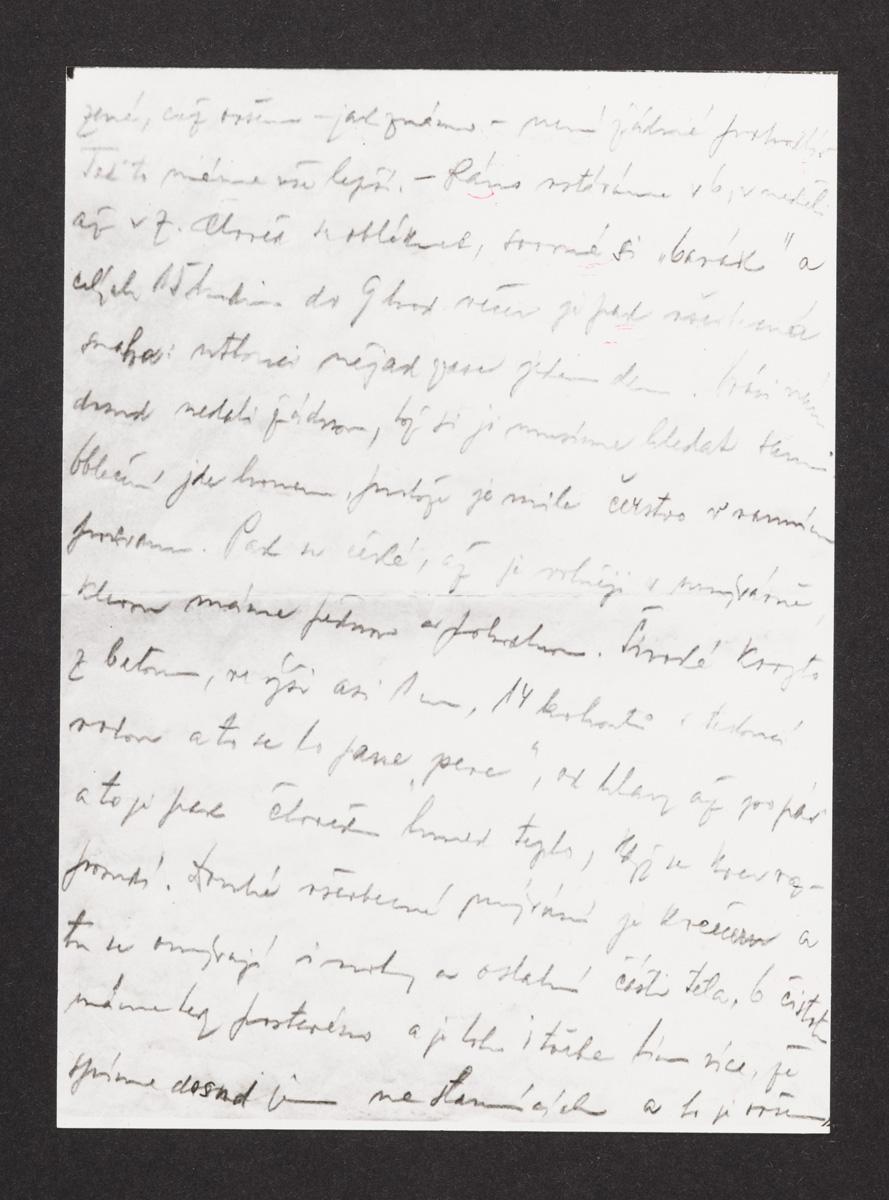 zené, což ovšem – jak známo – není žádné
Teď to máme vše lepší. – Ráno vstáváme v 6, v neděli
až v 7. Člověk se oblékne, srovná si „barák" a
celých 15 hodin do 9 hod večer je pak všeobecná
snaha: utlouci nějak zase jeden den. Práci nám
dosud nedali žádnou, tož si ji musíme hledat sami.
Oblečení jde honem, protože je milé čerstvo v ranním
Pak se čeká, až je volněji v umývárně,
kterou máme jednou a pohodlnou. Široké koryto
z betonu, ve výši asi 1 m, 14 kohoutů s tekoucí
vodou a to se to jane „pere", od hlavy až po pás
a to je pak člověku hned teplo, když se krev roz-
proudí. Druhé všeobecné mytí je k večeru a
tu se umývají i nohy a ostatní části těla. O čistotu
máme tedy postaráno a je toho i třeba tím více, že
spíme dosud jen na slamnících a to je ovšem